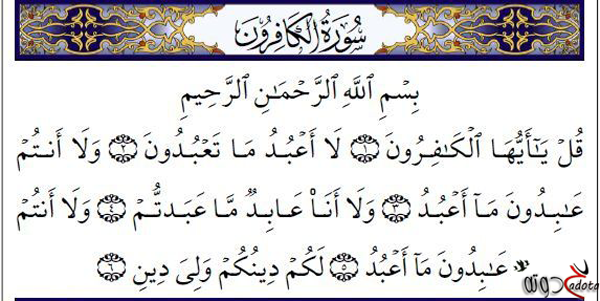 سُورَةُ الكَافِرُونَ
بِسْمِ اللَّهِ الرَّحْمَٰنِ الرَّحِيمِ
قُلْ يَٰٓأَيُّهَا الْكَٰفِرُونَ ۝١ لَا أَعْبُدُ مَا تَعْبُدُونَ ۝٢ وَلَا أَنتُمْ
عَٰبِدُونَ مَآ أَعْبُدُ ۝٣ وَلَا أَنَا۠ عَابِدٌ مَّا عَبَدتُّمْ ۝٤ وَلَا أَنتُمْ
عَٰبِدُونَ مَآ أَعْبُدُ ۝٥ لَكُمْ دِينُكُمْ وَلِىَ دِينِ ۝٦